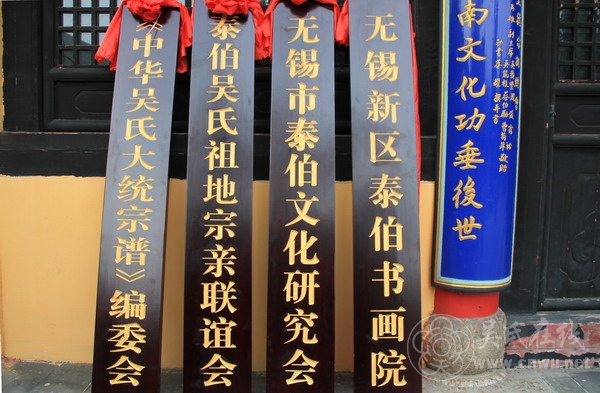 《中华吴氏大统宗谱》编委会
泰伯吴氏祖地宗亲联谊会
无锡市泰伯文化研究会
无锡新区泰伯书画院
南文化功垂後世
吴氏在线
www.cnwu.net